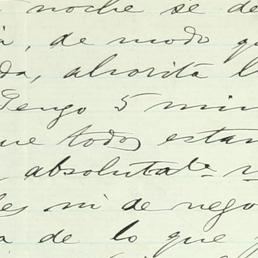 noche se de
a, de modo q
da, ahorita l
Tengo 5 min
que todos estan
absolutate. n
les ni de nego
a de lo que